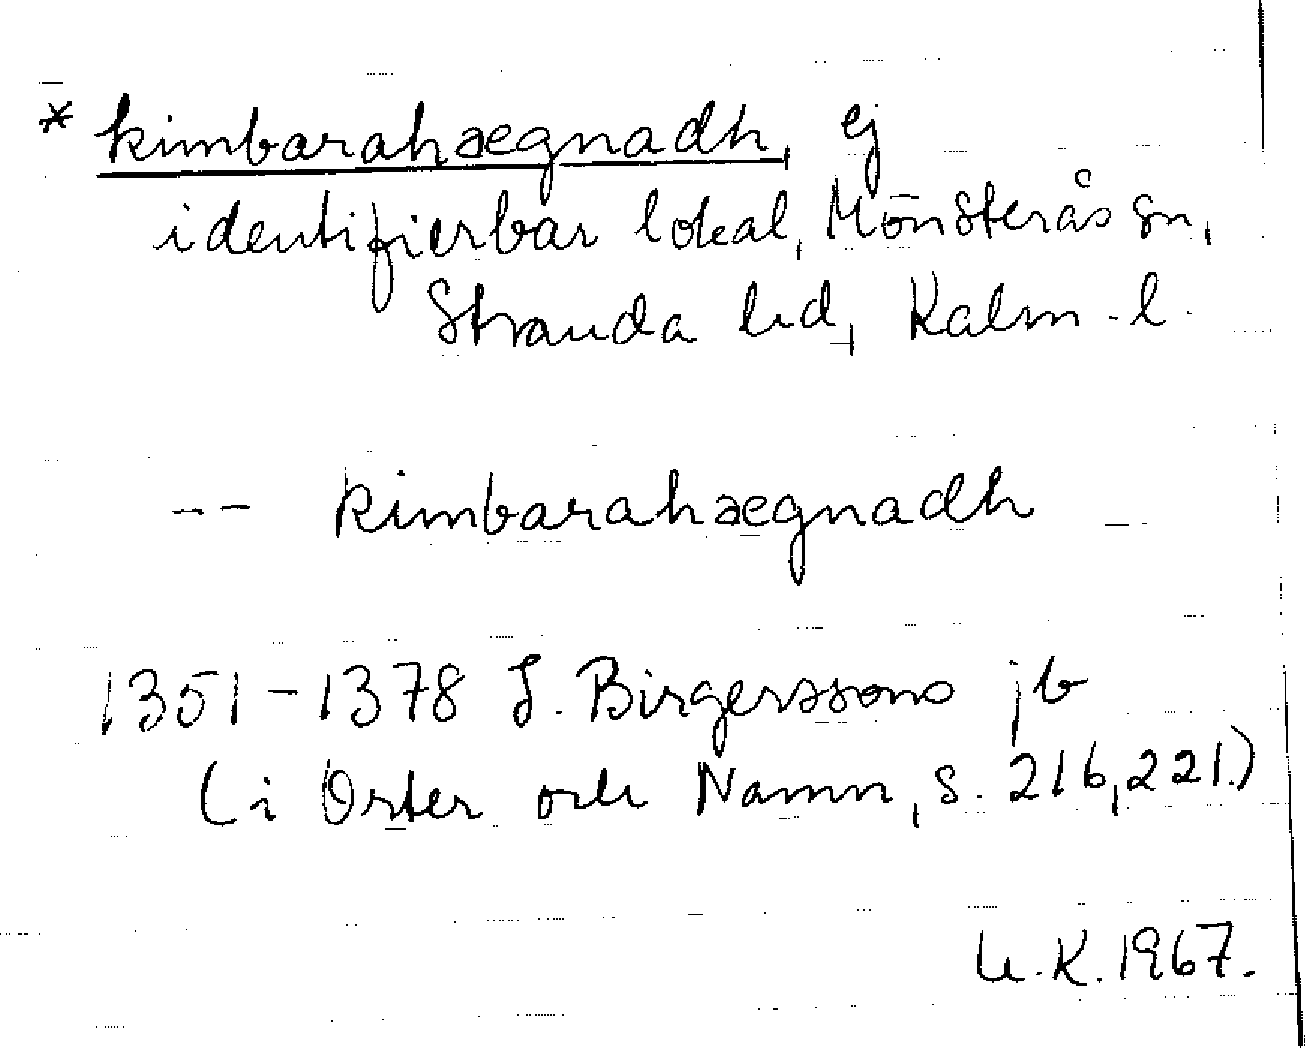 * kimbarahægnadh, ej
identifierbar lokal, Mönsterås sn,
Stranda hd, Kalm. l.
-- kimbarahægnadh
1351-1378 J. Birgerssons jb
(i Orter och Namn, s. 216, 221.)
U.K. 1967.